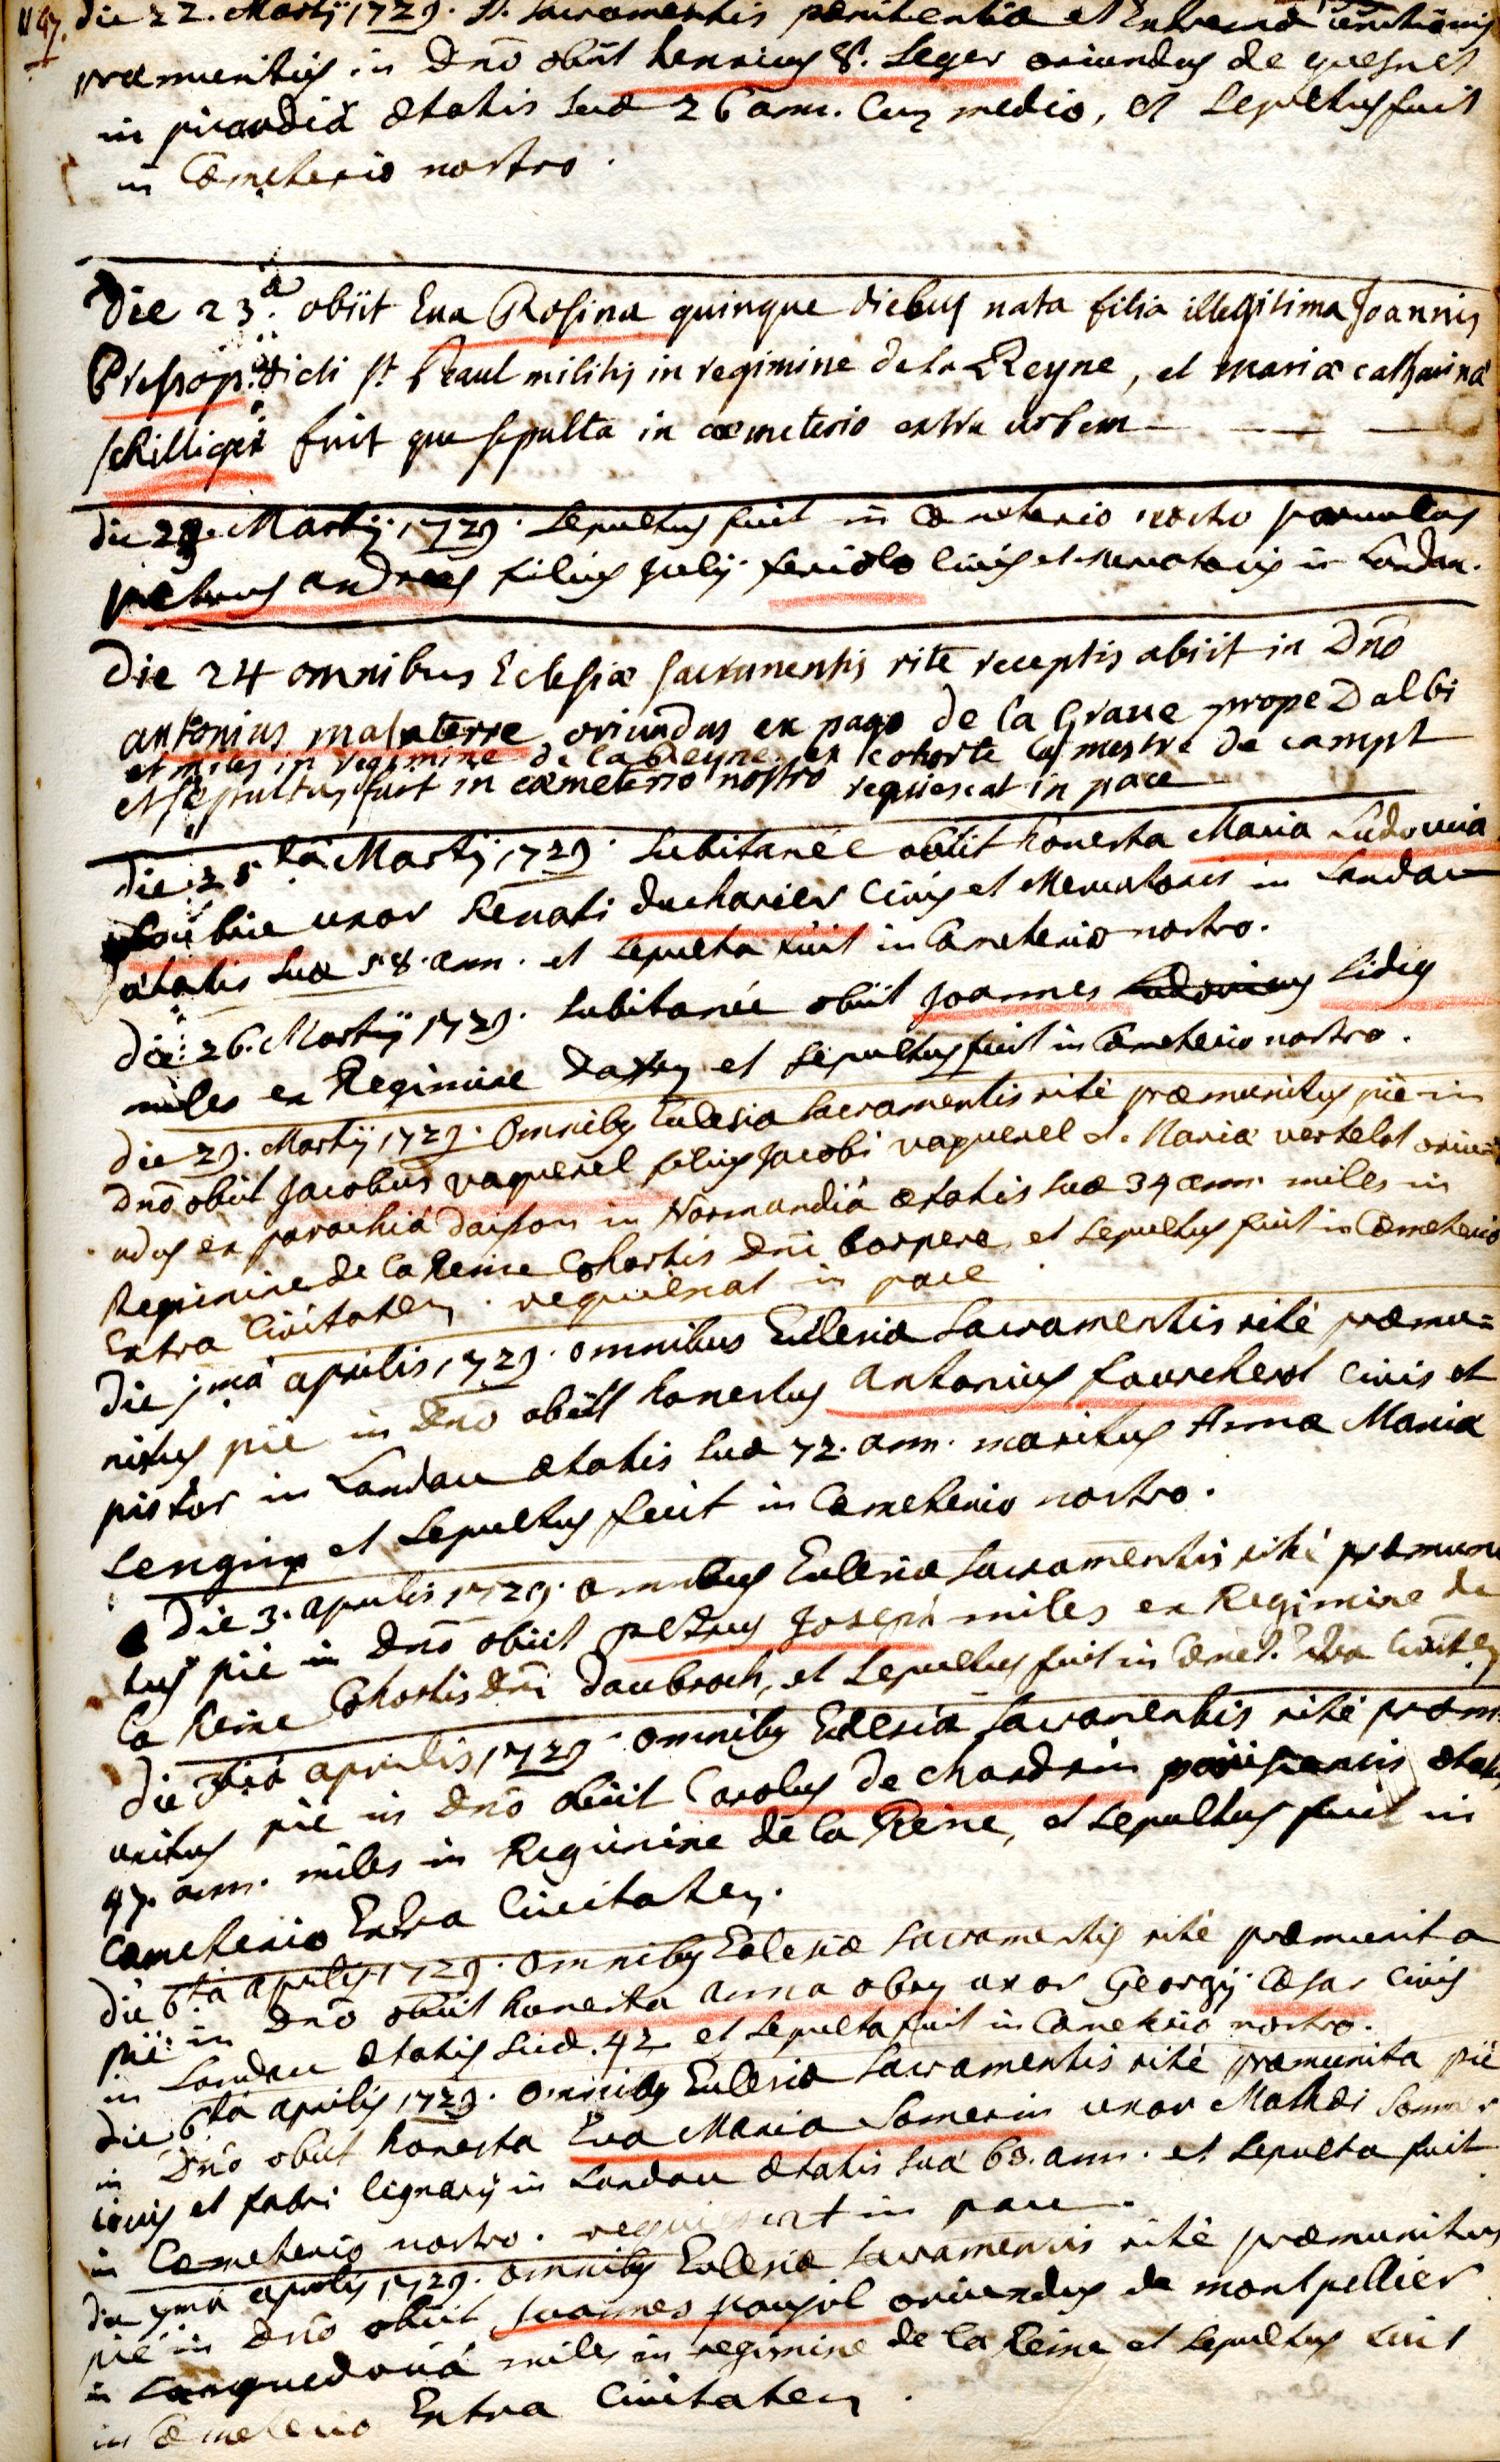 1147.
die 22. Martij 1729. St. Sacramentis pænitentiæ et Extremæ unctionis
præmunitus in Dnō obiit henricus St. Leger oriundus de quesnel
in picardiâ ætatis suæ 26 ann. Cum medio, et Sepultus fuit
in Cœmeterio nostro.
Die 23.a obiit Eva Rosina quinque diebus nata filia illegitima Joannis
dicti St. Paul militis in regimine de la Reyne, et Mariæ catharinæ
fuit que sepulta in cœmeterio extra urbem
die 23. Martij 1729. Sepultus fuit in Cœmeterio nostro parvulus
petrus andreas filius Julij feriolo civis et mercatoris in Landau.
Die 24 omnibus Eclesiæ sacramentis rite receptis obiit in Dnō
antonius malaterre oriundus ex pago de la Grave prope Dalbi
et miles in regimine de la Reyne ex cohorte mestre de campt
et sepultus fuit in cœmeterio nostro requiescat in pace
die 25ta Martij 1729. Subitaneè obiit honesta Maria Ludovica
uxor Renati ducharier Civis et Mercatoris in Landau
ætatis suæ 58. ann. et Sepulta fuit in Cœmeterio nostro.
die 26. Martij 1729. Subitaneè obiit Joannes Ludovicus Lidig
miles ex Regimine et Sepultus fuit in Cœmeterio nostro.
die 29. Martij 1729. Omnibus Eclesiæ Sacramentis rité præmunitus pié in
Dnō obiit Jacobus vaquerel filius Jacobi vaquerel et Mariæ vertelot oriu=
ndus ex parochiâ in Normandiâ ætatis suæ 34 ann. miles in
Regimine de la Reine Cohortis Dni et Sepultus fuit in Cœmeterio
Extra Civitatem. requiescat in pace.
die jmâ aprilis 1729. omnibus Eclesiæ Sacramentis rité præmu=
nitus pié in Dnō obiit honestus Antonius fourcherot civis et
pistor in Landau ætatis suæ 72. ann. maritus Annæ Mariæ
et Sepultus fuit in Cœmeterio nostro.
die 3. aprilis 1729. omnibus Eclesiæ Sacramentis rité præmuni
tus pié in Dnō obiit petrus Joseph miles ex Regimine de
la Reine Cohortis Dni daubroch, et Sepultus fuit in Cœmet. Extra Civitatem
die aprilis 1729. omnibus Eclesiæ Sacramentis rité præm
unitus pié in Dnō obiit Carolus de chardrin parisiensis ætatis
47. ann. miles in Regimine de la Reine, et sepultus fuit in
Cœmeterio Extra Civitatem.
die 6ta aprilis 1729. omnibus Eclesiæ Sacramentis rité præmunita
pié in Dnō obiit honesta anna obry uxor Georgij Cæsar Civis
in Landau ætatis suæ. 42 et Sepulta fuit in Cœmeterio nostro.
die 6ta aprilis 1729. omnibus Eclesiæ Sacramentis rité præmunita pié
in Dnō obiit honesta Eva Maria Somerin uxor Mathæi Sommer
civis et fabri lignarij in Landau ætatis suæ 60. ann. et Sepulta fuit
in Cœmeterio nostro. requiescat in pace.
die 7ma aprilis 1729. omnibus Eclesiæ Sacramentis rité præmunitus
pié in Dnō obiit Joannes poujol oriundus de montpellier
in Languedociâ miles in regimine de la Reine et sepultus fuit
in Cœmeterio Extra Civitatem.